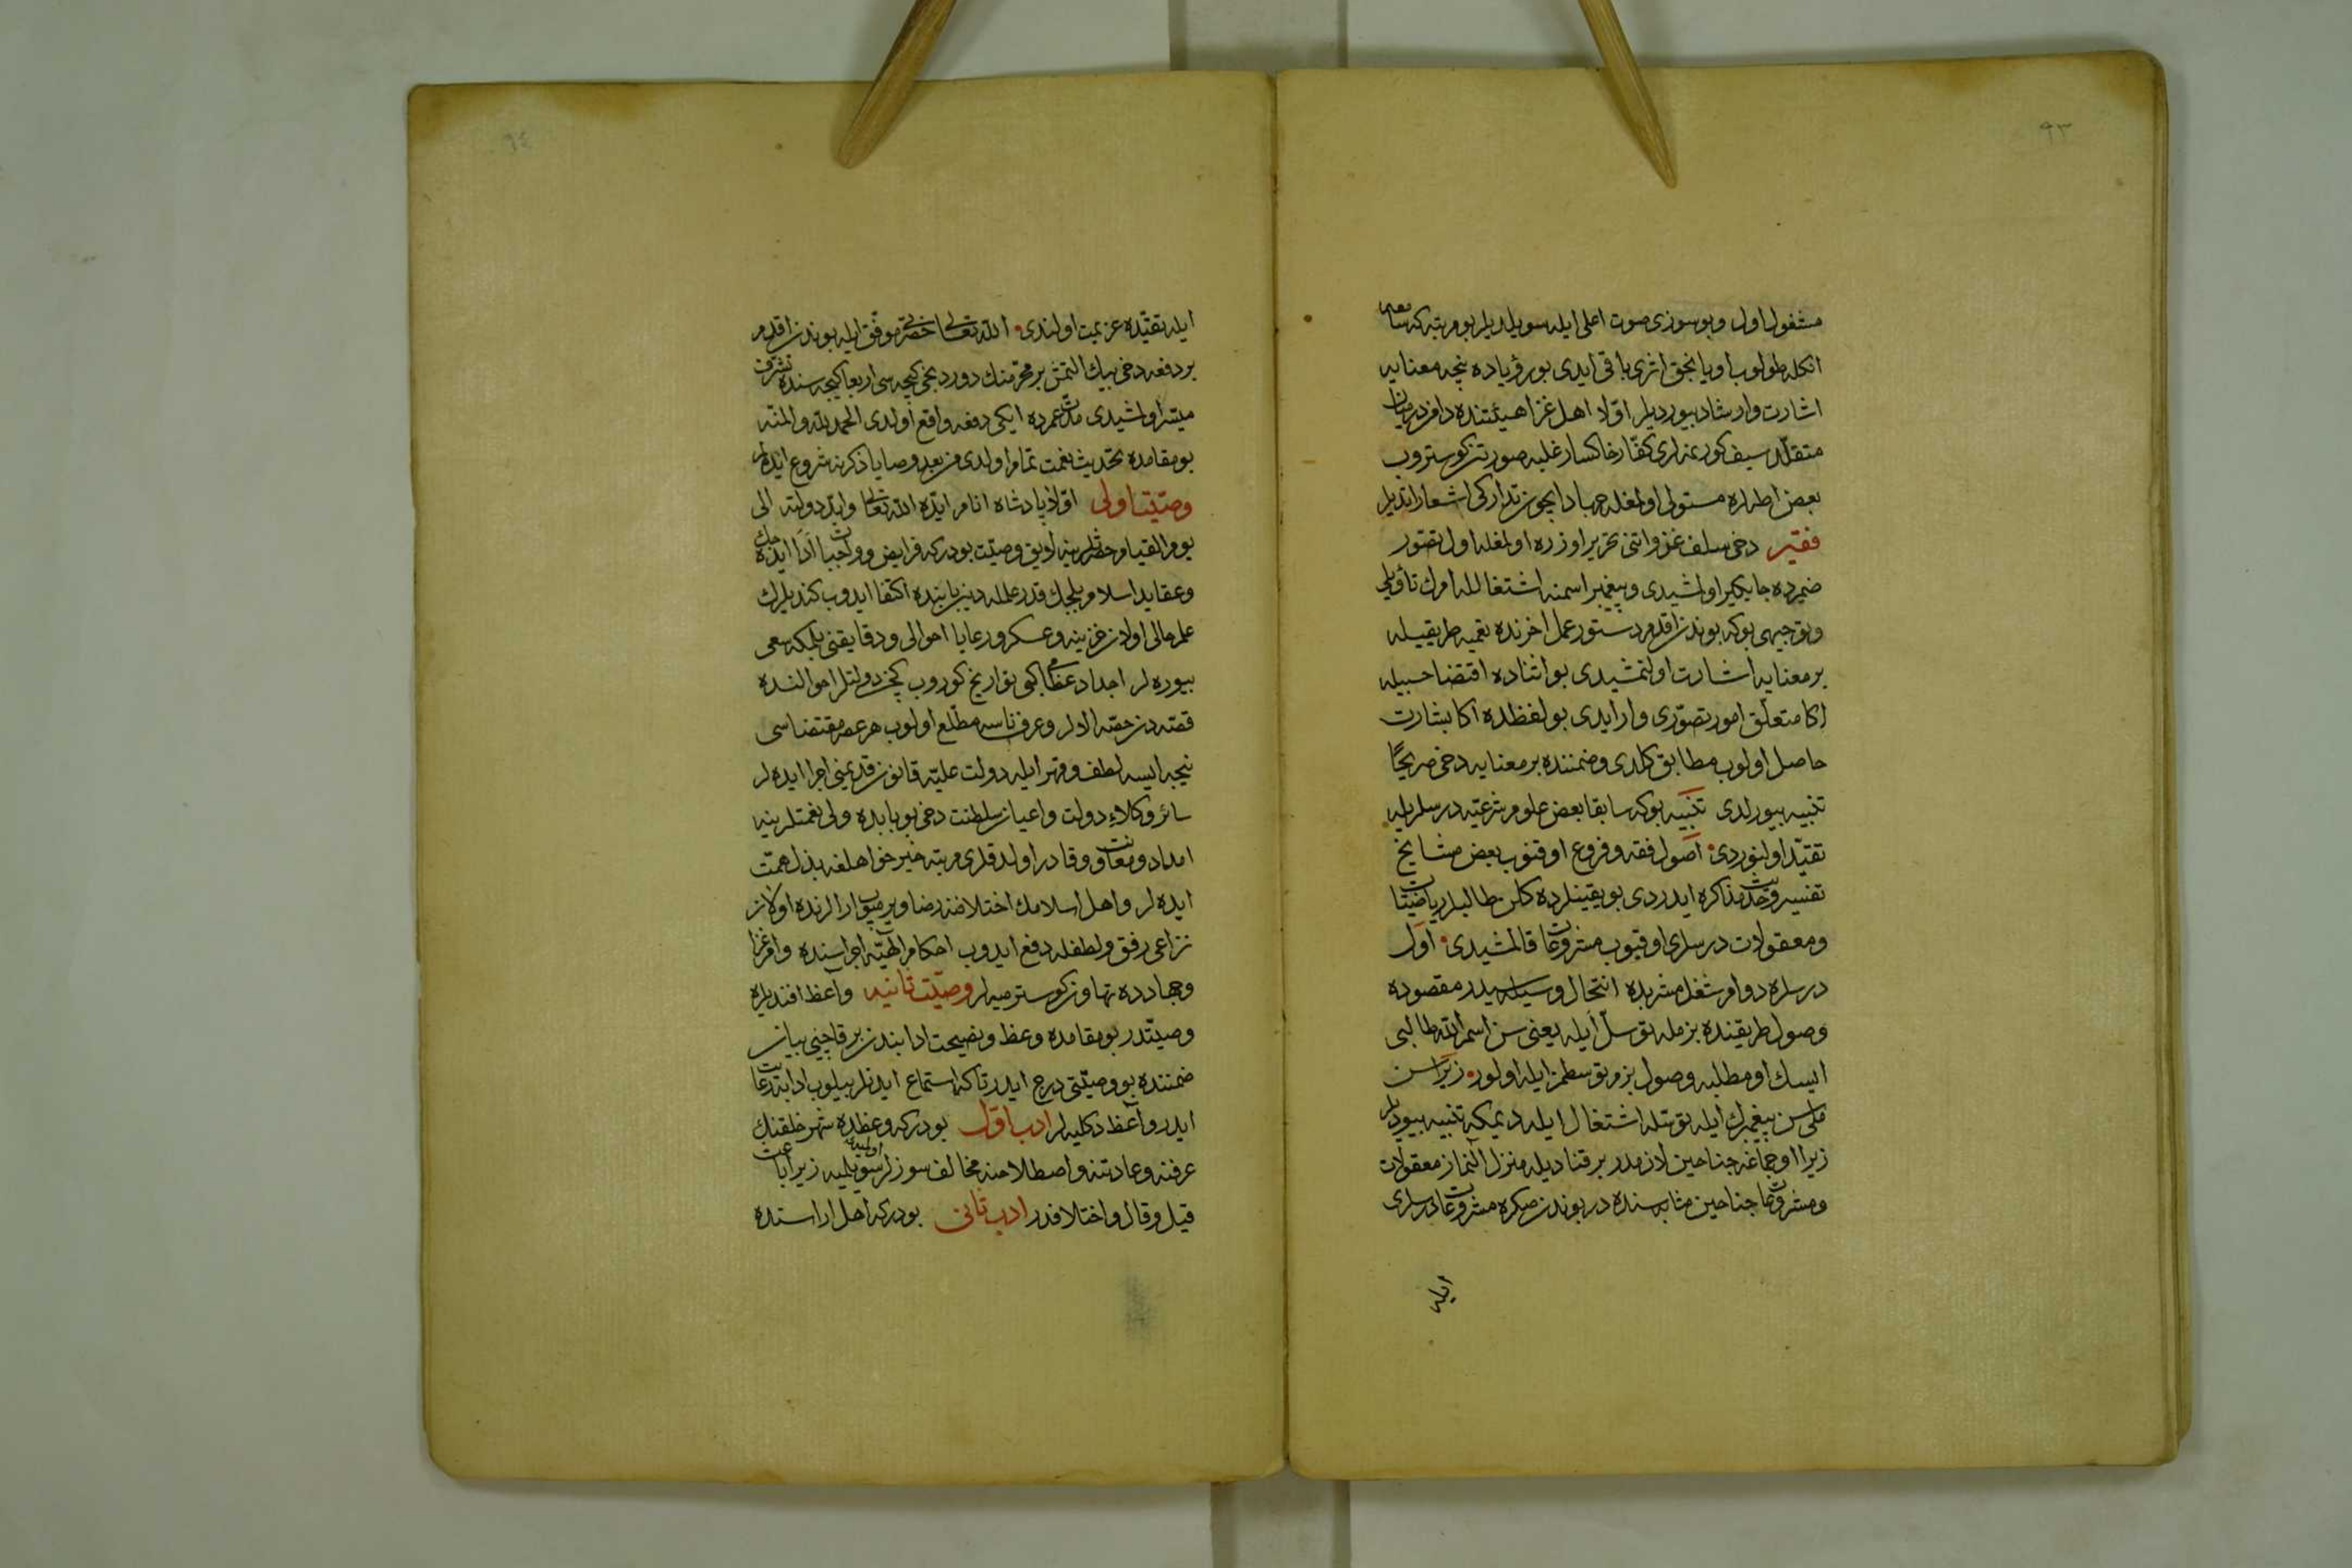 ٩٣
مشغول اول وبو سوزی صوت اعلی ایله سویلدیلر بو مرتبه که سامعه
انکله طولوب اویانجق اثری باقی ایدی بو رؤیاده نیجه معنایه
اشارت وارشاد بیوردیلر اولا اهل غزا هیئتنده دامن درمیان
متقلد سیف کورنمزلری کفار خاکسار غلبه صورتن کوستروب
بعض اطرافه مستولی اولمغله جهاد ایچون تدارکی اشعار ایتدیلر
فقیر دخی سلف غزواتنی تحریر اوزره اولمغله اول تصور
ضمیرده جایکیر اولمشیدی وپیغمبر اسمنه اشتغالله امرك تأویلی
وتوجیهی بوکه بوندن اقدم دستور عمل اخرنده تعمیه طریقیله
بر معنایه اشارت اولنمشیدی بو اثناده اقتضا حسبیله
اکا متعلق امور تصوری وار ایدی بو لفظله اکا بشارت
حاصل اولوب مطابق کلدی وضمننده بر معنایه دخی صریحًا
تنبیه بیورلدی تنبیه بوکه سابقا بعض علوم شرعیه درسلریله
تقید اولنوردی اصول فقه وفروع اوقنوب بعض مشایخ
تفسیر وحدیث مذاکره ایدردی بو یقینلرده کلن طالبلر ریاضیات
ومعقولات درسلری اوقیوب مشروعات قالمشیدی اول
درسلره دوام شغل مشربده انتحال وسیله‌سیدر مقصوده
وصول طریقنده بزمله توسل ایله یعنی سن اسم الله طالبی
ایسك او مطلبه وصول بزم توسطمز ایله اولور زیرا سن
ملی سن پیغمبرك ایله توسله اشتغال ایله دیمکه تنبیه بیوردیلر
زیرا اوچماغه جناحین لازمدر بر قنادیله منزل النماز معقولات
ومشروعات جناحین مثابه‌سنده در بوندن صکره مشروعات درسلری
ایله
٩٤
ایله تقیده عزیمت اولندی الله تعالی حضرتلری موفق ایلیه بوندن اقدم
بر دفعه دخی بیك التمش بر محرمنك دوردنجی کیجه‌سی اربعا کیجه‌سنده تشرف
میسر اولمشیدی مدت عمرده ایکی دفعه واقع اولدی الحمد لله والمنه
بو مقامده تحدیث نعمت تمام اولدی من بعد وصایا ذکرنه شروع ایدهلر
وصیت اولی اولا پادشاه انام ایده الله تعالی وابد دولته الی
یوم القیام حضرتلرینه لایق وصیت بودرکه فرایض وواجبات ادا ایده‌جك
وعقاید اسلام بیلجك قدر علمله دینی باینده اکتفا ایدوب کندیلرك
علم حالی اولان خزینه وعسکر ورعایا احوالی ودقایقنی بیلمکه سعی
بیوره‌لر اجداد عظامی کبی تواریخ کوروب کچن دولتلر احوالنده
قصه‌دن حصه الالر وعرف ناسه مطلع اولوب هر عصر مقتضاسی
نیجه ایسه لطف وقهر ایله دولت علیه قانون قدیمنی اجرا ایده‌لر
سائر وکلاء دولت واعیان سلطنت دخی بو بابده ولی نعمتلرینه
امداد ومعاونت وقادر اولدقلری مرتبه خیر خواهلغه بذل همت
ایده‌لر واهل اسلامك اختلافنه رضا ویرمیوب ارالرنده اولان
نزاعی رفق ولطفله دفع ایدوب احکام الهیه اجراسنده وامر غزا
وجهادده تهاون کوسترمیه‌لر وصیت ثانیه واعظ افندیلره
وصیتدر بو مقامده وعظ ونصیحت ادابندن بر قاچنی بیان
ضمننده بو وصیتی درج ایدر تا که استماع ایدنلر بیلوب ادابه رعایت
ایدر واعظ دکلیه‌لر ادب اول بودرکه وعظده شهر خلقنك
عرفنه وعادتنه واصطلاحنه مخالف سوزلر سویلمیه زیرا باعث
قیل وقال واختلافدر ادب ثانی بودرکه اهل اراسنده